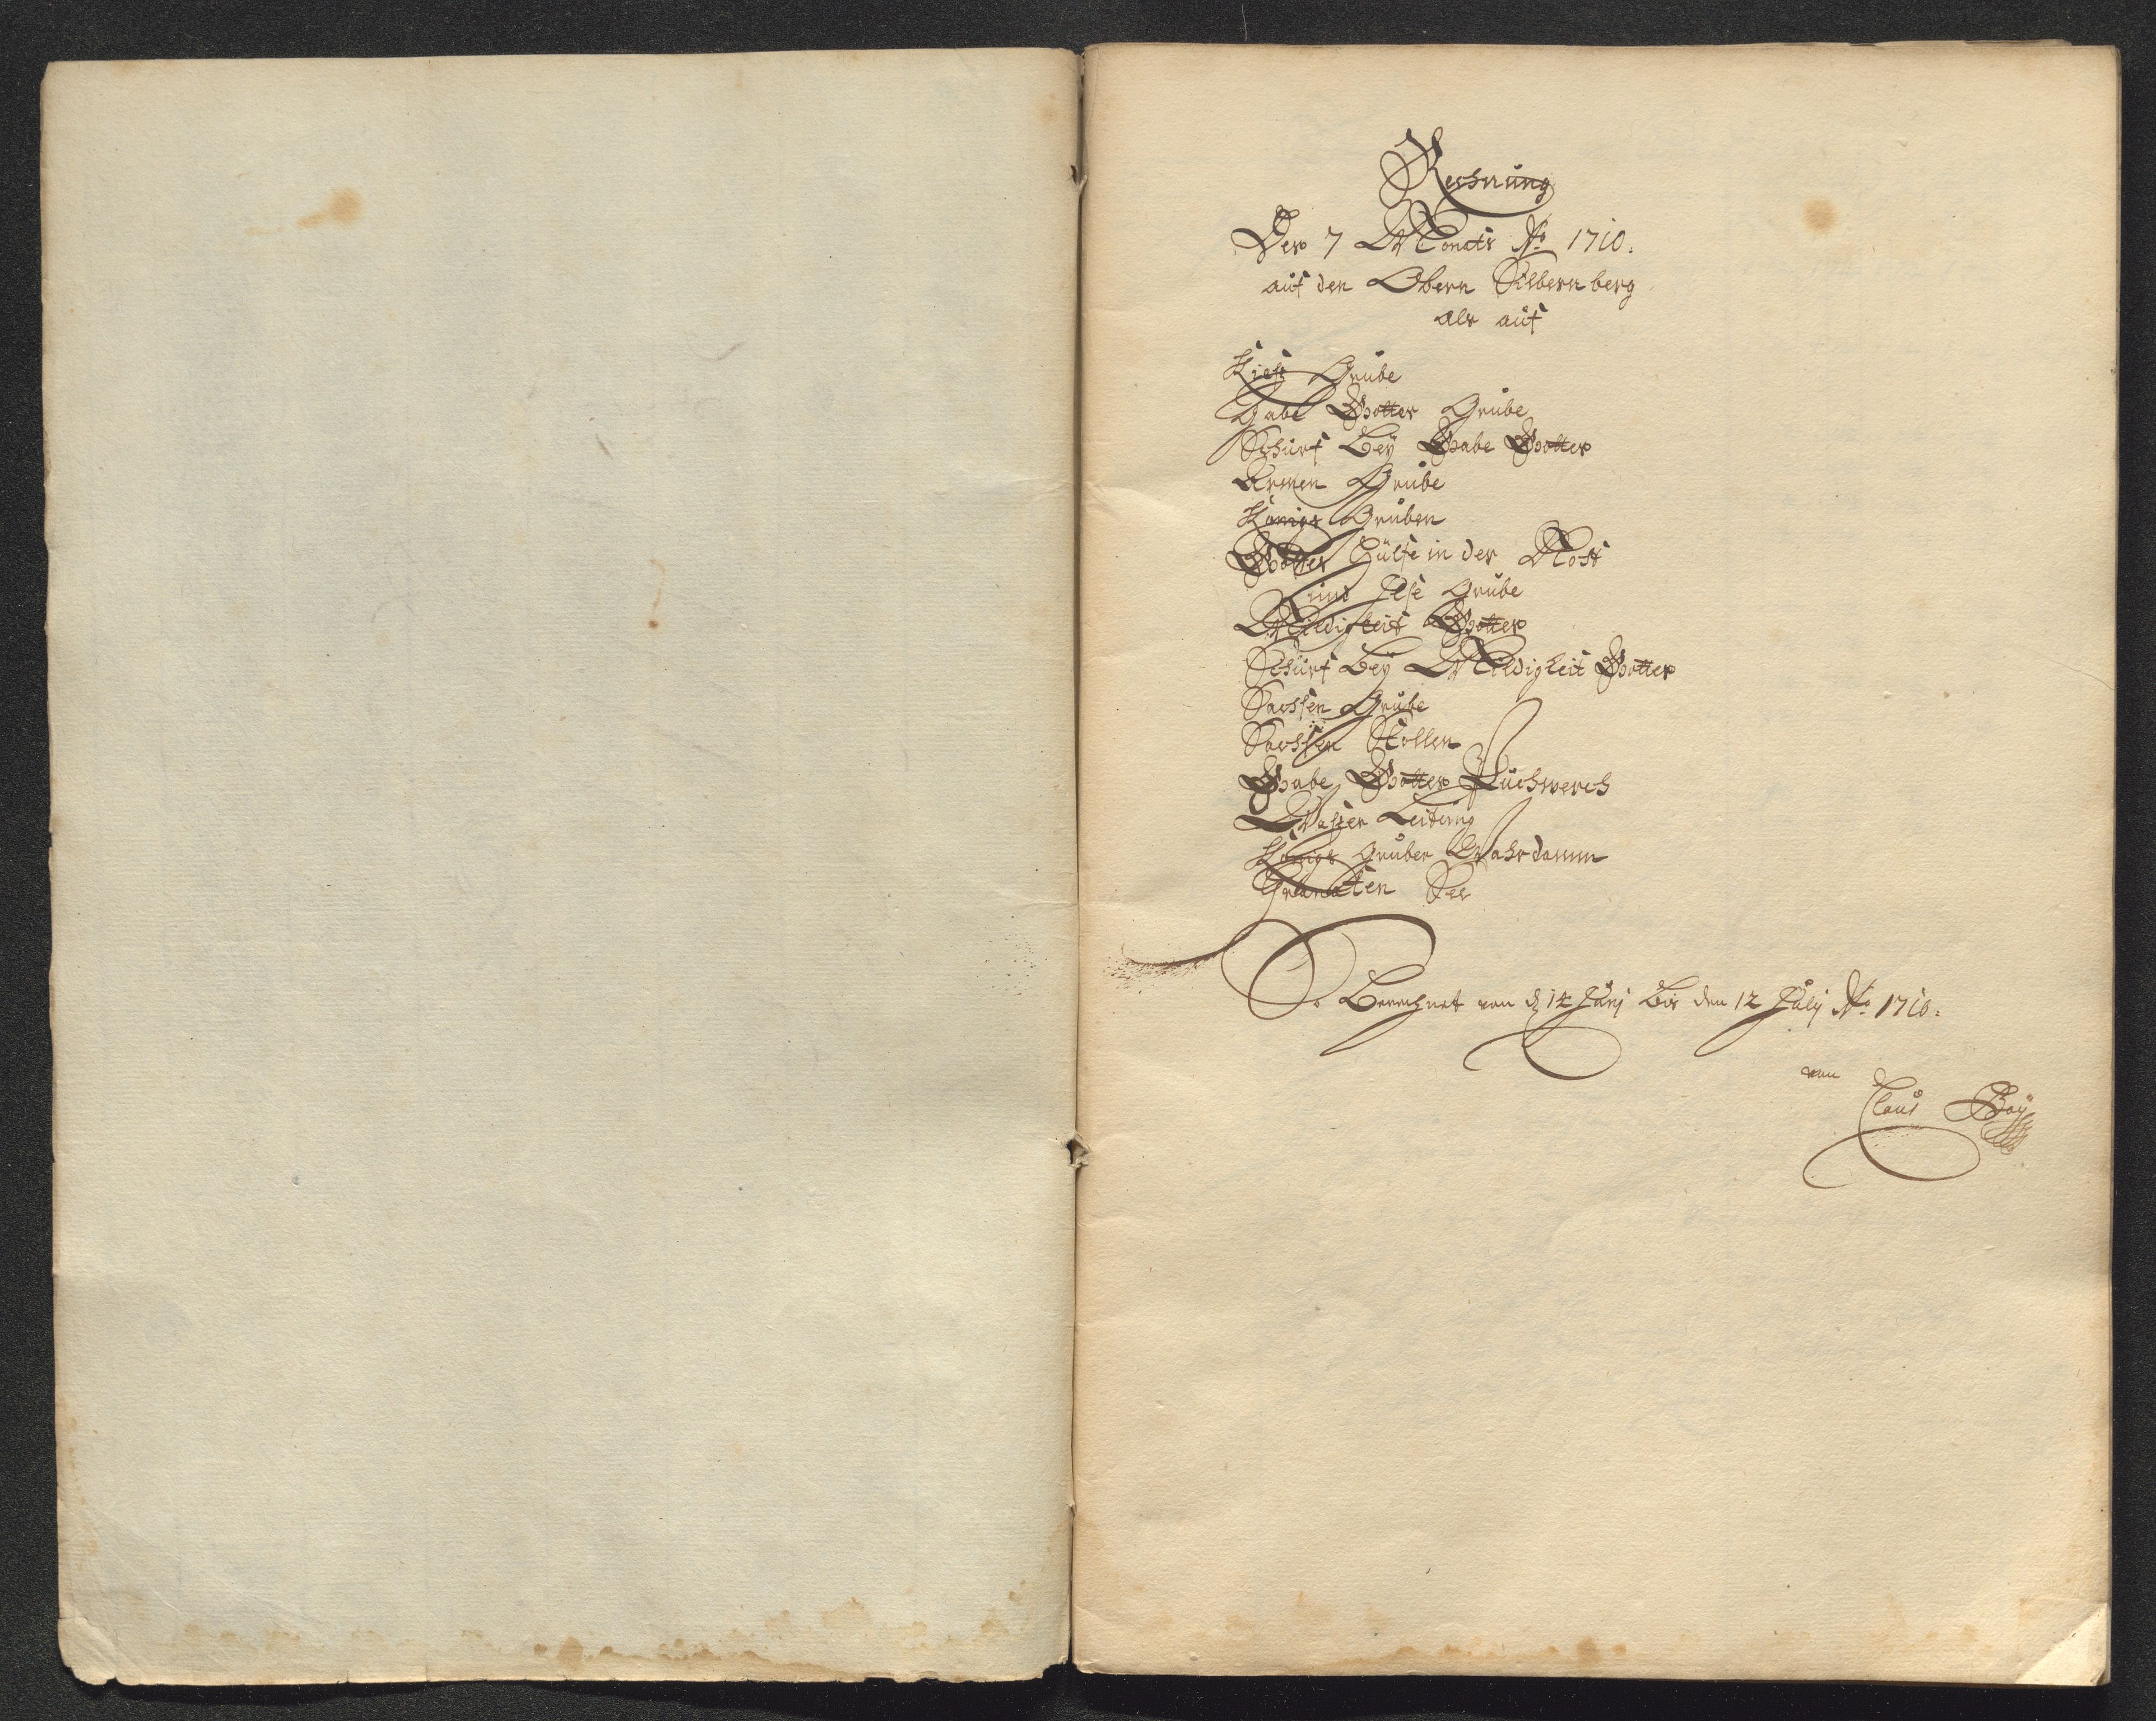 Rechnung
Des 7 Monats Ao 1710.
auf den Obern Silbern berg
als auf
Grube
Gabe Gottes Grube
Schurf Beÿ Gabe Gottes
Armen Grube
Königs Gruben
Gottes Hülfe in der Noht
und Grube
Mildigkeit Gottes
Schurf Beÿ Mildigkeit Gottes
Sachsen Grube
Sachsen Stollen
Gabe Gottes Puchwerch
Wasser Leitung
Königs Gruber
See
So Berechnet von d 14 Junj Bis den 12 Julÿ Ao 1710.
von
Claus Baÿ